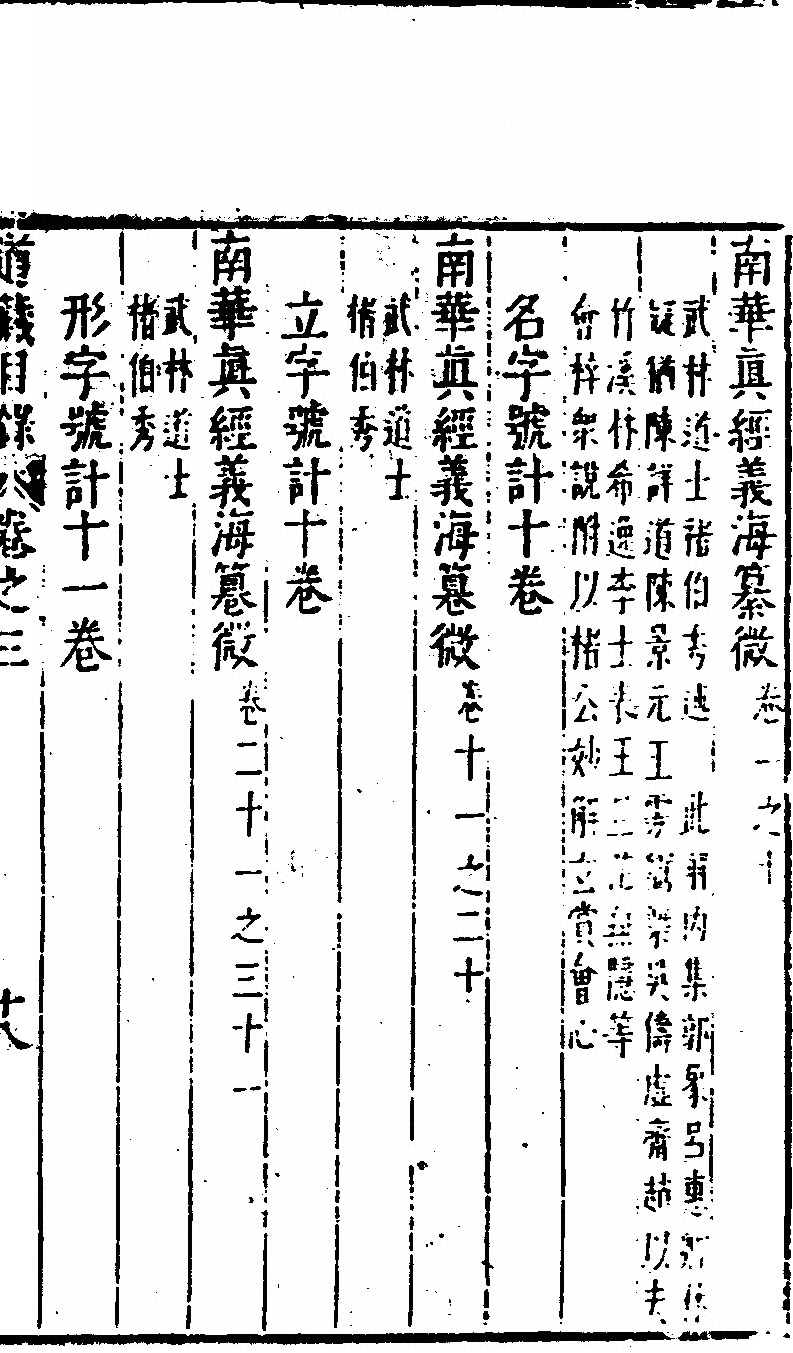 南華眞經義海纂微卷一之十
武林道士褚伯秀述 此書內集郭象呂惠卿林
疑獨陳詳道陳景元王雱劉槩吳儔虛齋趙以夫
竹溪林希逸李士表王旦范無隱等
會梓衆說附以褚公妙解立賞會心
名字號計十卷
南華眞經義海纂微卷十一之二十
武林道士
褚伯秀
立字號計十卷
南華眞經義海纂微卷二十一之三十一
武林道士
褚伯秀
形字號計十一卷
道藏目錄 卷之三 十八